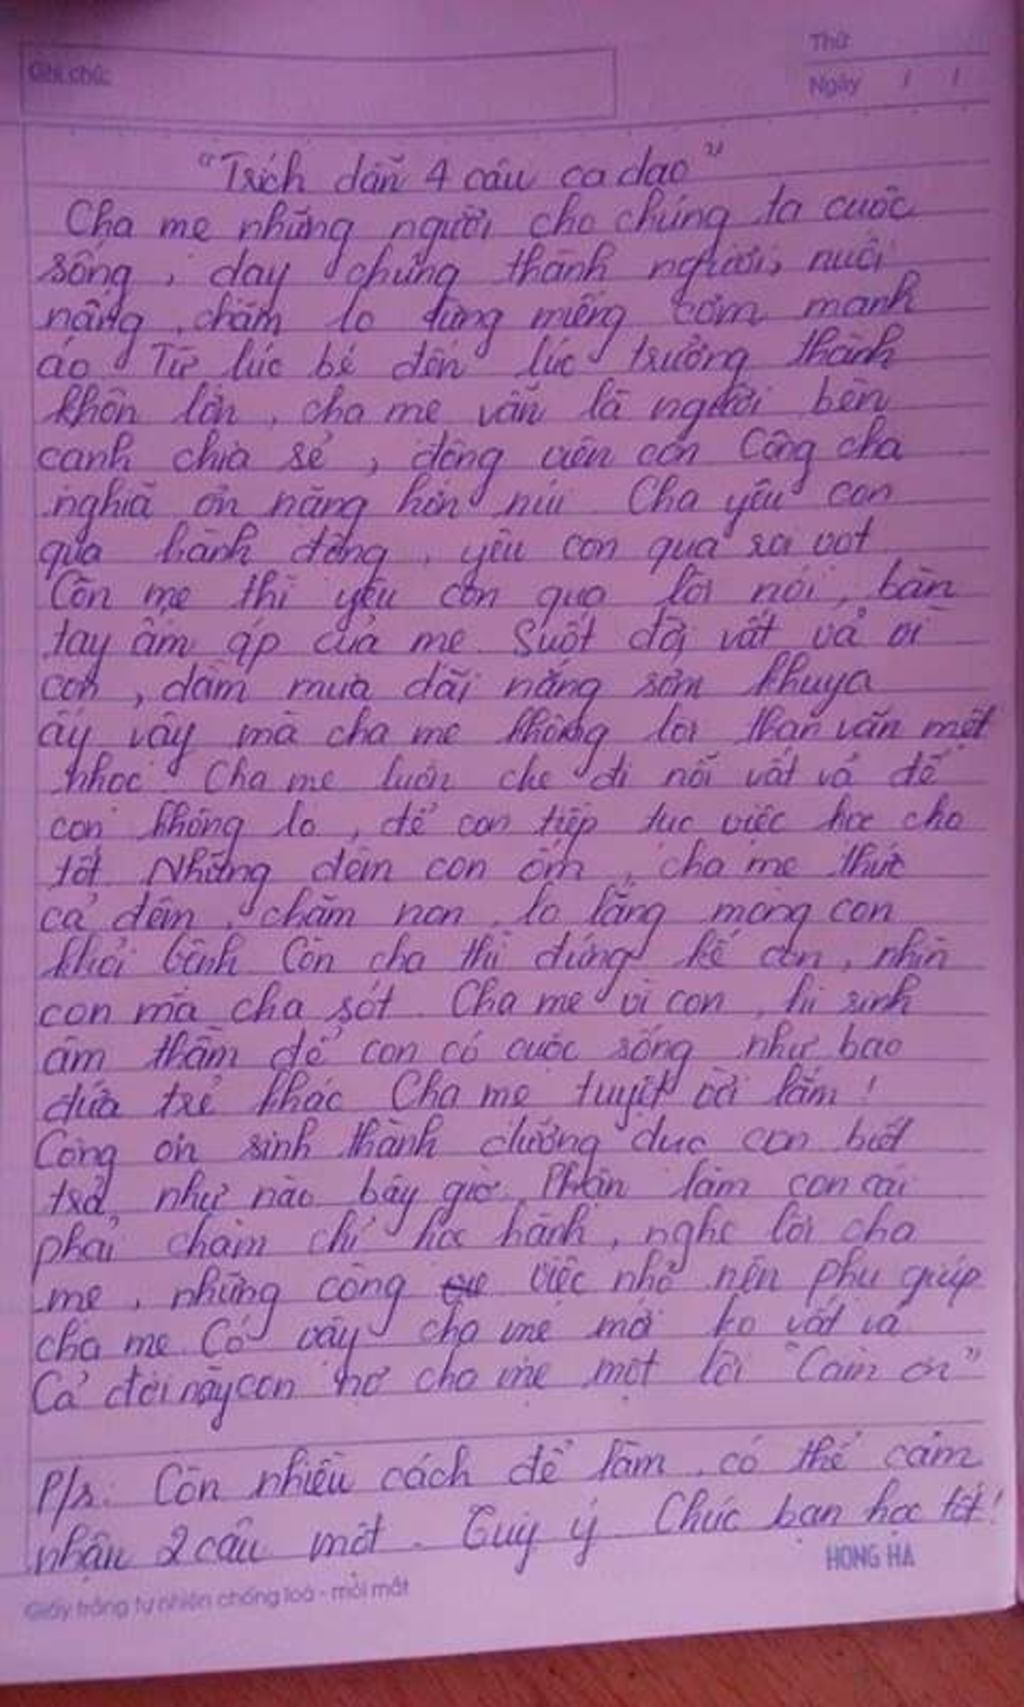 Ghi chú:
Thứ
Ngày / /
"Trích dẫn 4 câu ca dao"
Cha mẹ những người cho chúng ta cuộc
sống, dạy chúng thành người, nuôi
nấng, chăm lo từng miếng cơm manh
áo Từ lúc bé đến lúc trưởng thành
khôn lớn, cha mẹ vẫn là người bên
cạnh chia sẻ, động viên con Công cha
nghĩa ơn nặng hơn núi Cha yêu con
qua hành động, yêu con qua sơ vot
Còn mẹ thì yêu con qua lời nói, bàn
tay ấm áp của mẹ. Suốt đời vất vả vì
con, dầm mưa dãi nắng sớm khuya
ấy vậy mà cha mẹ không lời than vãn mệt
nhọc. Cha mẹ luôn che đi nỗi vất vả để
con không lo, để con tiếp tục việc học cho
tốt Những đêm con ốm, cha mẹ thức
cả đêm, chăm non, lo lắng mong con
khỏi bệnh Còn cha thì đứng kế con, nhìn
con mà cha sót. Cha mẹ vì con, hi sinh
âm thầm để con có cuộc sống như bao
đứa trẻ khác Cha mẹ tuyệt vời lắm!
Công ơn sinh thành dưỡng dục con biết
trả như nào bây giờ. Phận làm con cái
phải chăm chỉ học hành, nghe lời cha
mẹ, những công việc nhỏ nên phụ giúp
cha mẹ. Có vậy cha mẹ mới ko vất vả
Cả đời này con nợ cha mẹ một lời "Cảm ơn"
P/s: Còn nhiều cách để làm, có thể cảm
nhận 2 câu một. Tuỳ ý. Chúc bạn học tốt!
HONG HA
Giấy trắng tự nhiên chống loá - mỏi mắt